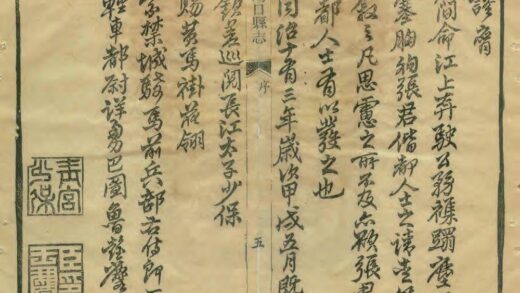 簡命江上奔馳公務襍蹋塵
塞胸胸張君偕都人士之請
敘之凡思慮之所不及亦欲張君
都人士有以發之也
同治十有三年歲次甲戌五月既
口縣志 序 五
欽差巡閱長江太子少保
賜黃馬褂花翎
紫禁城騎馬前兵部右侍郎一
輕車都尉詳勇巴圖魯
青宮少保